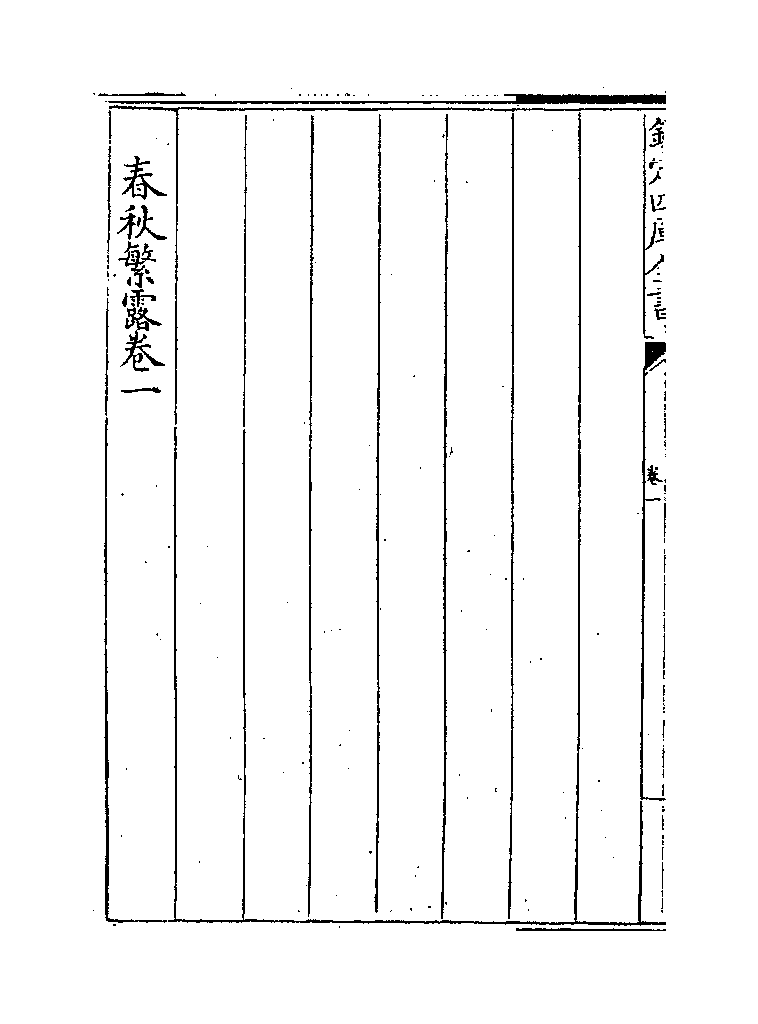 欽定四庫全書
卷一
春秋繁露卷一